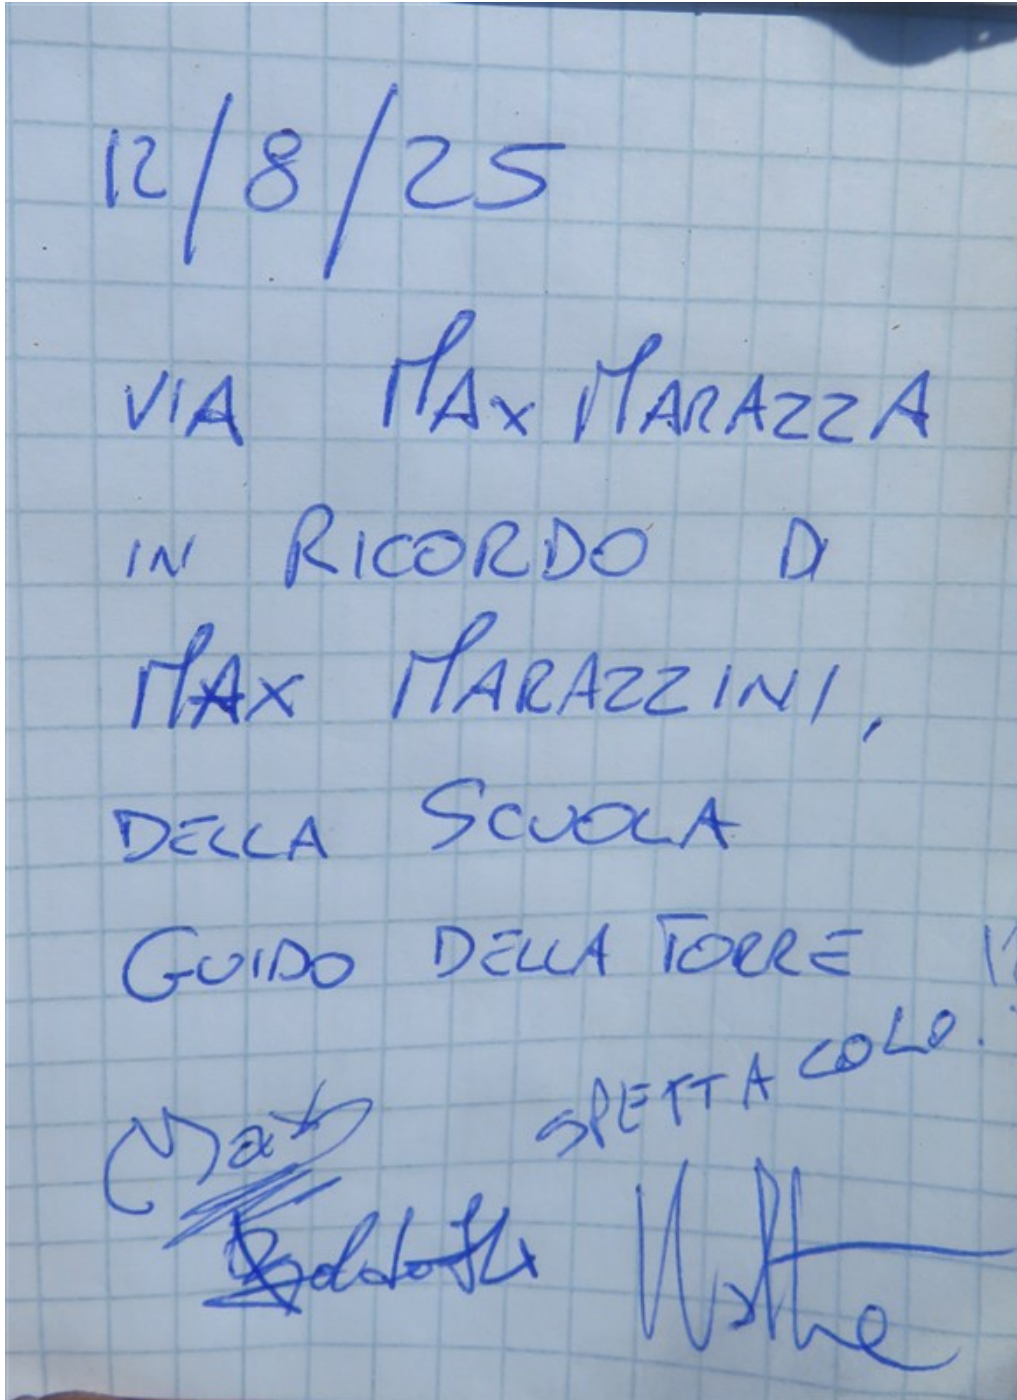 12/8/25
VIA MAX MARAZZA
IN RICORDO DI
MAX MARAZZINI,
DELLA SCUOLA
GUIDO DELLA TORRE
SPETTACOLO.
Max